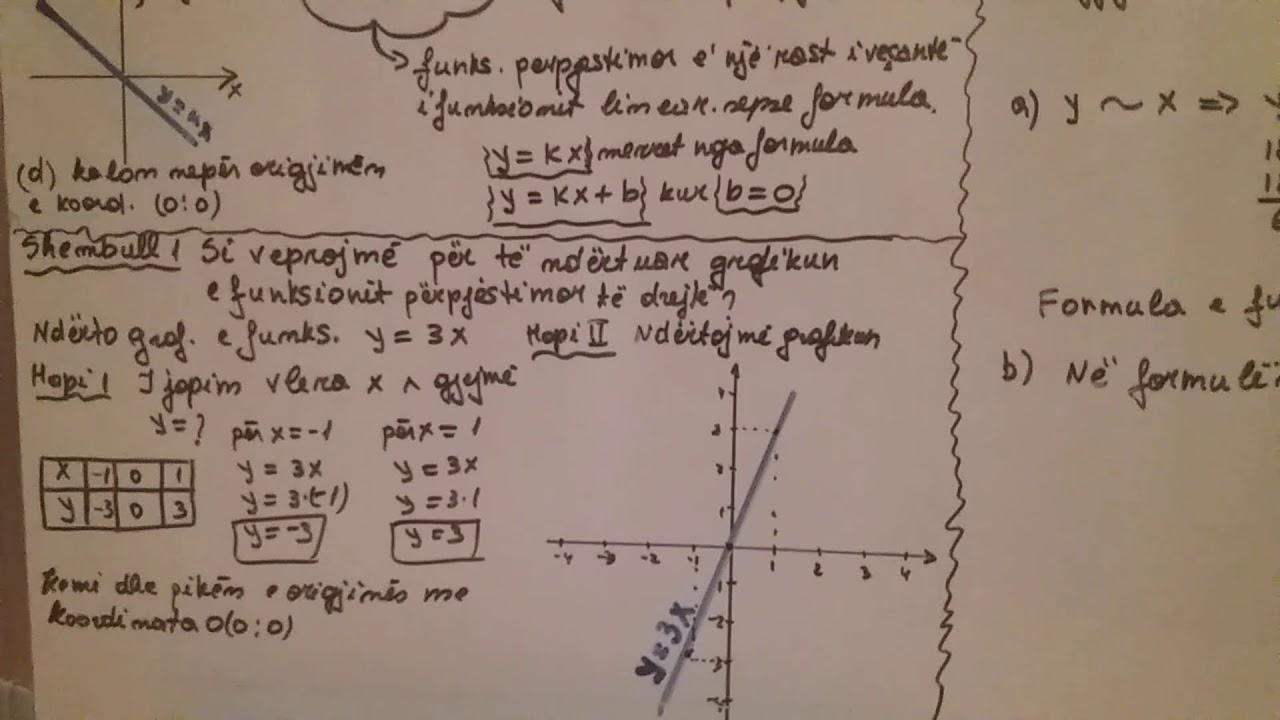 x
y=4x
funks. perpjestimor e' një rast i veçantë
i funksionit linear. sepse formula.
{y = kx} merret nga formula
{y = kx + b} kur {b = 0}
(d) kalon nepër origjinën
e koord. (0;0)
a) y ~ x => y
Shembull 1 Si veprojmë për të ndërtuar grafikun
e funksionit përpjestimor të drejtë?
Ndërto graf. e funks. y = 3x
Hapi 1 I japim vlera x ∧ gjejmë
y = ?
për x = -1
y = 3x
y = 3·(-1)
y = -3
për x = 1
y = 3x
y = 3·1
y = 3
x -1 0 1
y -3 0 3
Kemi dhe pikën e origjinës me
koordinata O(0;0)
Hapi II Ndërtojmë grafikun
4
3
2
1
-4 -3 -2 -1 1 2 3 4
-2
y=3x
Formula e fu
b) Në formulë